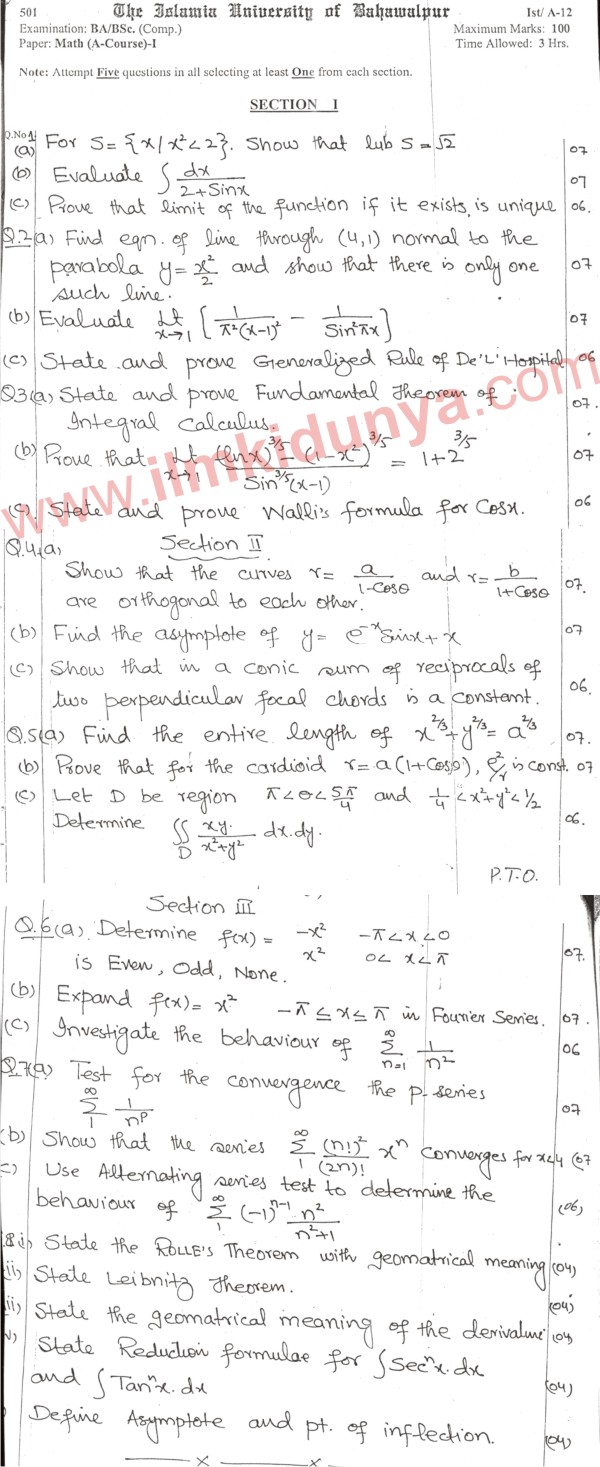 501 The Islamia University of Bahawalpur Ist/ A-12
Examination: BA/BSc. (Comp.) Maximum Marks: 100
Paper: Math (A-Course)-I Time Allowed: 3 Hrs.
Note: Attempt Five questions in all selecting at least One from each section.
SECTION I
Q.No1 (a) For S = {x/x²<2}. Show that lub S = √2 07
(b) Evaluate ∫ dx/(2+Sinx) 07
(c) Prove that limit of the function if it exists, is unique 06.
Q.2(a) Find eqn. of line through (4,1) normal to the
parabola y = x²/2 and show that there is only one 07
such line.
(b) Evaluate Lt x→1 [1/(π²(x-1)²) - 1/Sin²πx] 07
(c) State and prove Generalized Rule of De'L'Hospital 06
Q3(a) State and prove Fundamental Theorem of
Integral Calculus. 07.
(b) Prove that Lt x→1 ((lnx)^3/5 - (1-x²)^3/5)/(Sin^3/5(x-1)) = 1+2^3/5 07
(c). State and prove Walli's formula for Cosx. 06
www.ilmkidunya.com
Section II
Q.4.(a)
Show that the curves r = a/(1-Cosθ) and r = b/(1+Cosθ) 07.
are orthogonal to each other.
(b) Find the asymptote of y = e^-x Sinx + x 07
(c) Show that in a conic sum of reciprocals of
two perpendicular focal chords is a constant. 06.
Q.5(a) Find the entire length of x^2/3 + y^2/3 = a^2/3 07.
(b) Prove that for the cardioid r = a(1+Cosθ), ρ²/r is const. 07
(c) Let D be region π<θ<5π/4 and 1/4 < x²+y² < 1/2
Determine ∬D xy/(x²+y²) dx.dy. 06.
P.T.O.
Section III
Q.6(a). Determine f(x) = -x² -π<x<0
x² 0< x<π 07.
is Even, Odd, None.
(b) Expand f(x) = x² -π ≤ x ≤ π in Fourier Series. 07.
(c) Investigate the behaviour of ∑ n=1 ∞ 1/n² 06
Q.7(a) Test for the convergence the p-series
∑ 1 ∞ 1/n^p 07
(b) Show that the series ∑ 1 ∞ (n!)²/(2n)! x^n Converges for x<4 07
c) Use Alternating series test to determine the
behaviour of ∑ 1 ∞ (-1)^n-1 n²/(n²+1) (06)
8 i) State the ROLLE'S Theorem with geomatrical meaning (04)
ii) State Leibnitz Theorem.
(04)
ii) State the geomatrical meaning of the derivative (04)
v) State Reduction formulae for ∫Sec^n x. dx
and ∫Tan^n x. dx (04)
Define Asymptote and pt. of inflection. (04)
x x